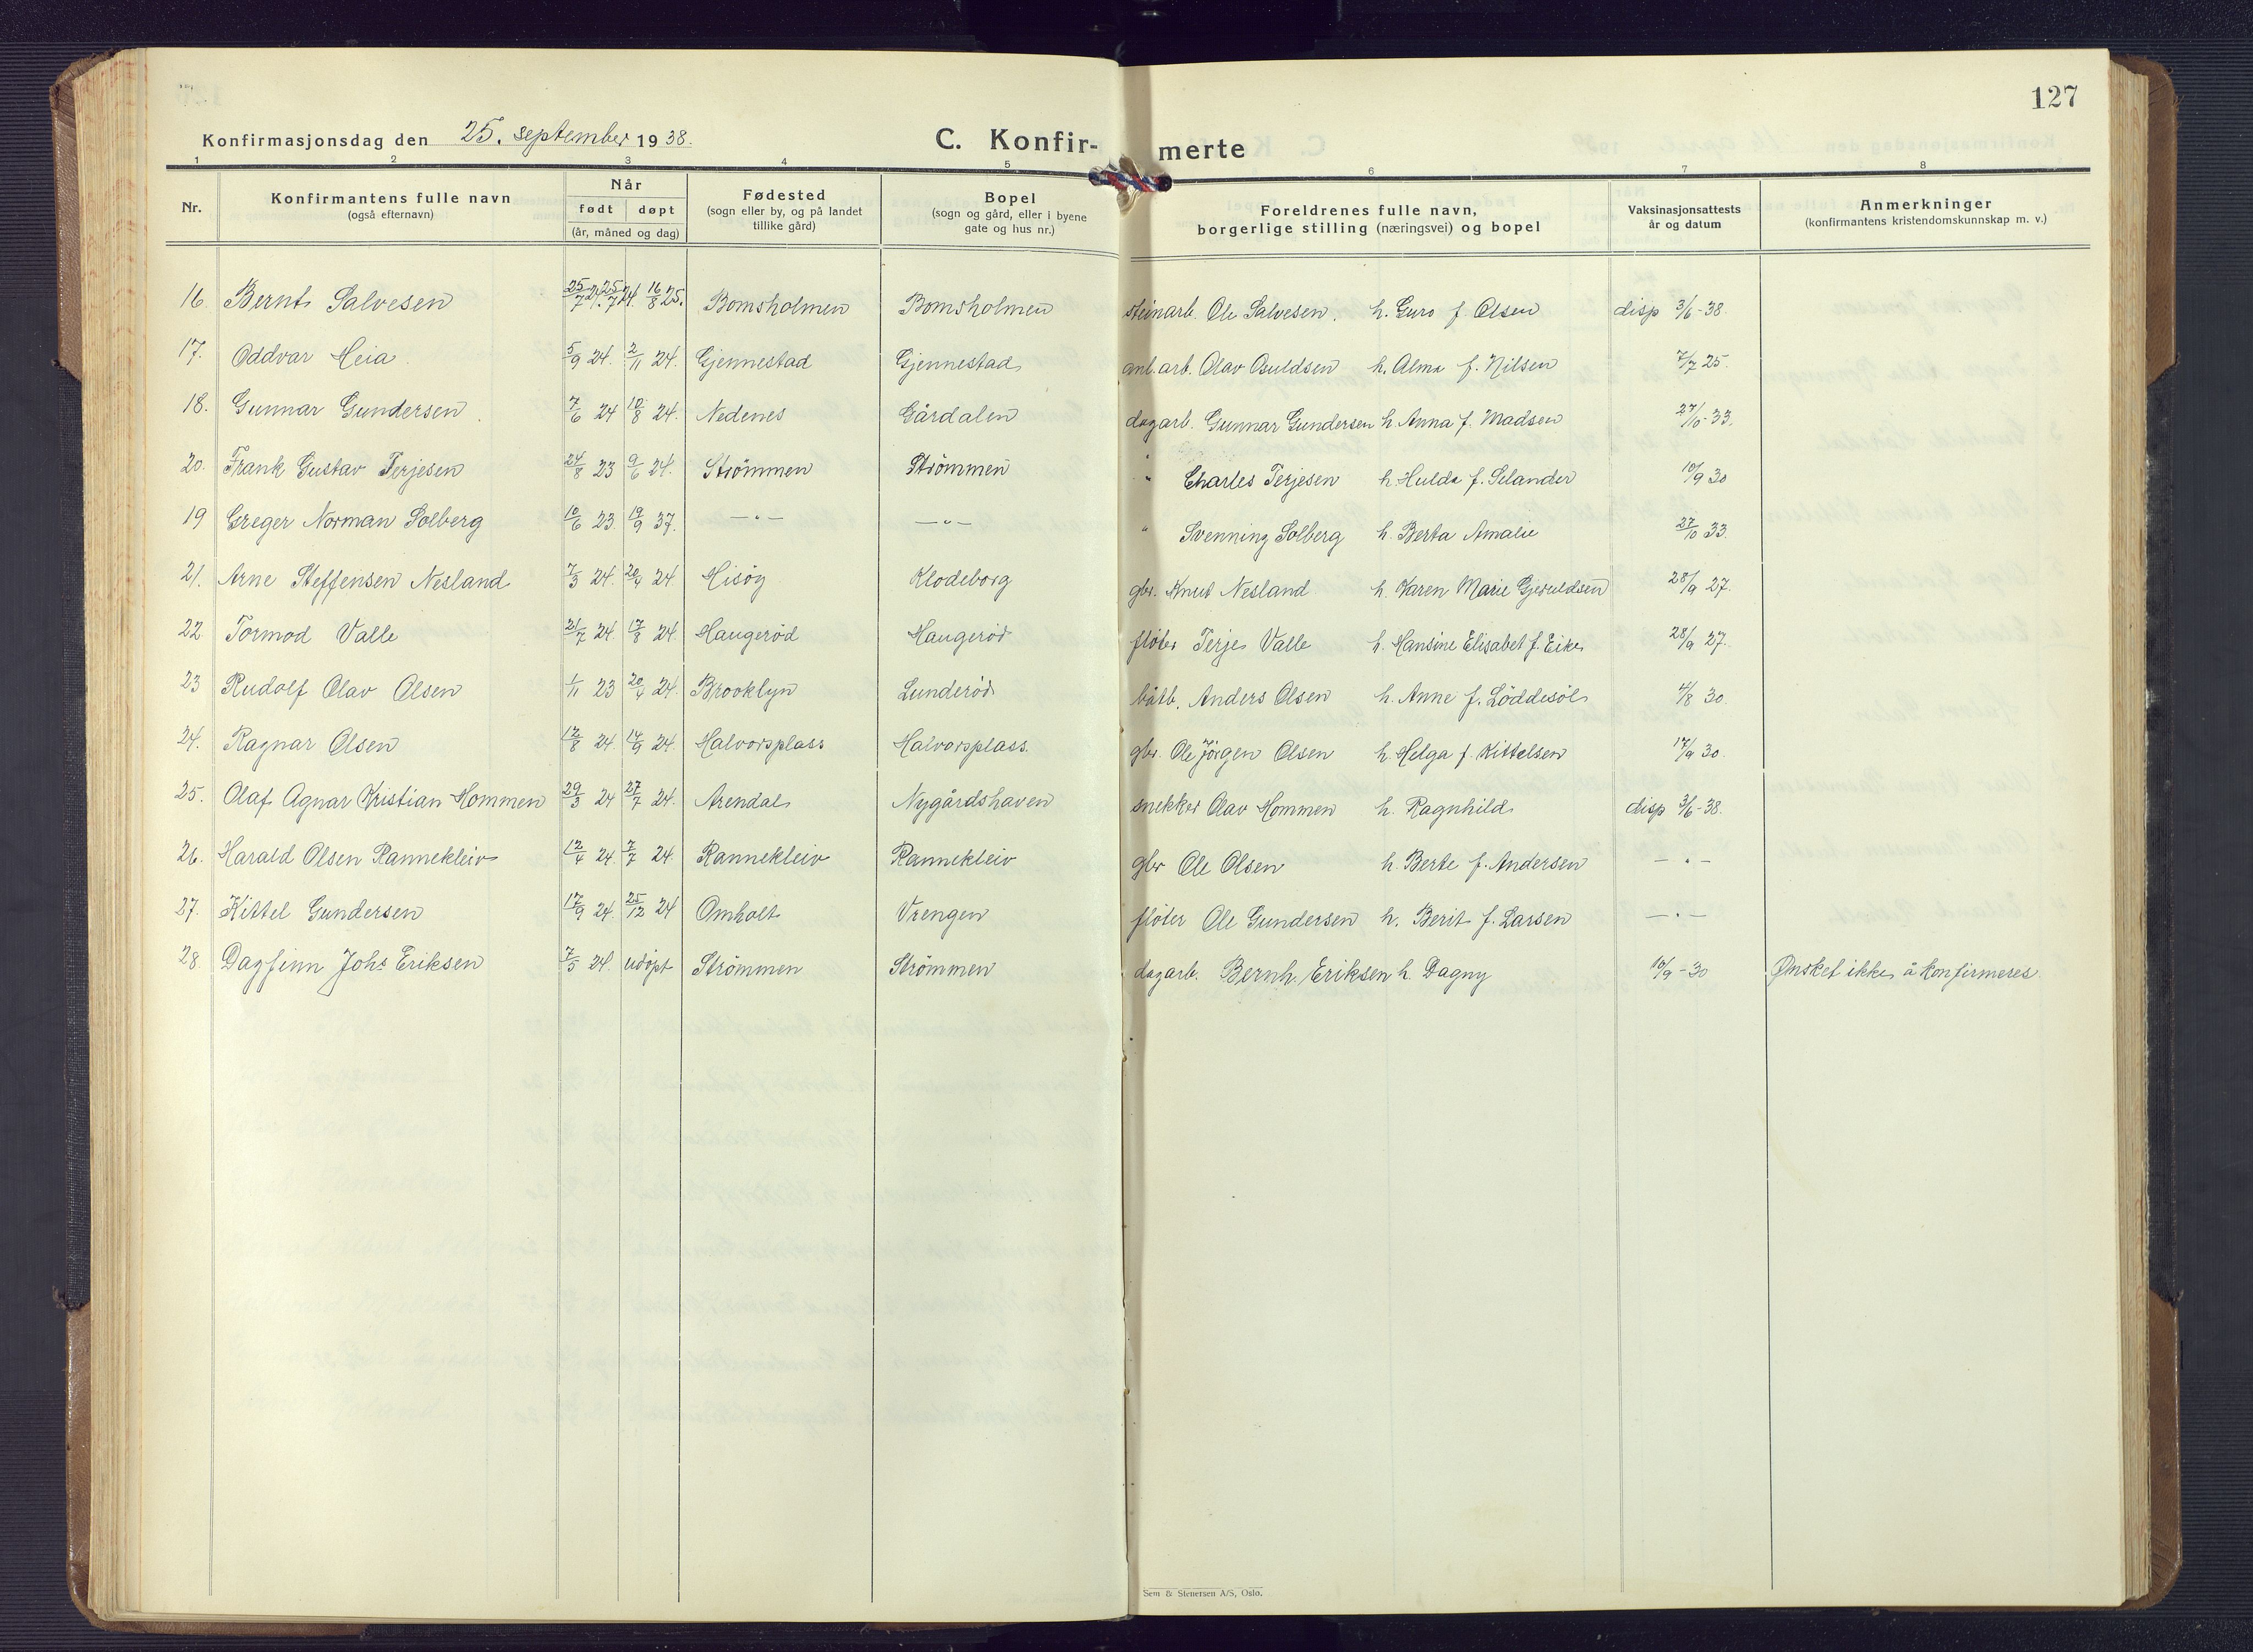 127
Konfirmasjonsdag den 25. september 1938.
C. Konfir-merte
1 2 3 4 5 6 7 8
Nr. Konfirmantens fulle navn (også efternavn) Når født døpt (år, måned og dag) Fødested (sogn eller by, og på landet tillike gård) Bopel (sogn og gård, eller i byene gate og hus nr.) Foreldrenes fulle navn, borgerlige stilling (næringsvei) og bopel Vaksinasjonsattests år og datum Anmerkninger (konfirmantens kristendomskunnskap m. v.)
16. Bernt Salvesen 25/7 24. 25/7 24. 16/8 25. Bomsholmen Bomsholmen steinarb. Ole Salvesen. h. Guro f Olsen disp 3/6-38.
17. Oddvar Heia. 5/9 24. 2/11 24. Gjennestad Gjennestad anl.arb. Olav Osuldsen h. Alma f. Nilsen 7/7 25.
18. Gunnar Gundersen. 7/6 24 10/8 24. Nedenes Gårdalen dagarb. Gunnar Gundersen h. Anna f. Madsen 27/10-33.
20. Frank Gustav Terjesen 24/8 23 9/6 24. Strömmen Strömmen " Charles Terjesen h. Hulda f. Selander 10/9 30
19 Greger Norman Solberg 10/6 23. 19/9 37. —"— —"— " Svenning Solberg h. Berta Amalie 27/10 33.
21. Arne Steffensen Nesland 7/3 24. 20/4 24. Hisöy Klodeborg gbr. Knut Nesland h. Karen Marie Gjeruldsen 28/9 27.
22 Tormod Valle 21/7 24. 17/8 24. Haugeröd Haugeröd flöter Terje Valle h. Hansine Elisabet f. Eike 28/9 27.
23 Rudolf Olav Olsen 1/11 23 20/4 24. Brooklyn Lunderöd båtb. Anders Olsen h. Anne f. Löddesöl 4/8 30.
24. Ragnar Olsen 12/8 24. 14/9 24. Halvorsplass Halvorsplass. gbr. Ole Jörgen Olsen h. Helga f. Kittelsen 17/9 30.
25. Olaf Agnar Kristian Hommen 29/3 24 27/7 24. Arendal Nygårdshaven snekker Olav Hommen h. Ragnhild disp 3/6-38.
26. Harald Olsen Rannekleiv 12/4 24. 7/7 24 Rannekleiv Rannekleiv gbr Ole Olsen h. Berte f. Andersen —"—
27. Kittel Gundersen 17/9 24. 25/12 24 Omholt Vrengen flöter Ole Gundersen h. Berit f. Larsen —"—
28. Dagfinn Johs Eriksen 7/5 24. udöpt Strömmen Strömmen dagarb. Bernh. Eriksen h. Dagny 10/9-30 Ønsket ikke å konfirmeres.
Sem & Stenersen A/S, Oslo.